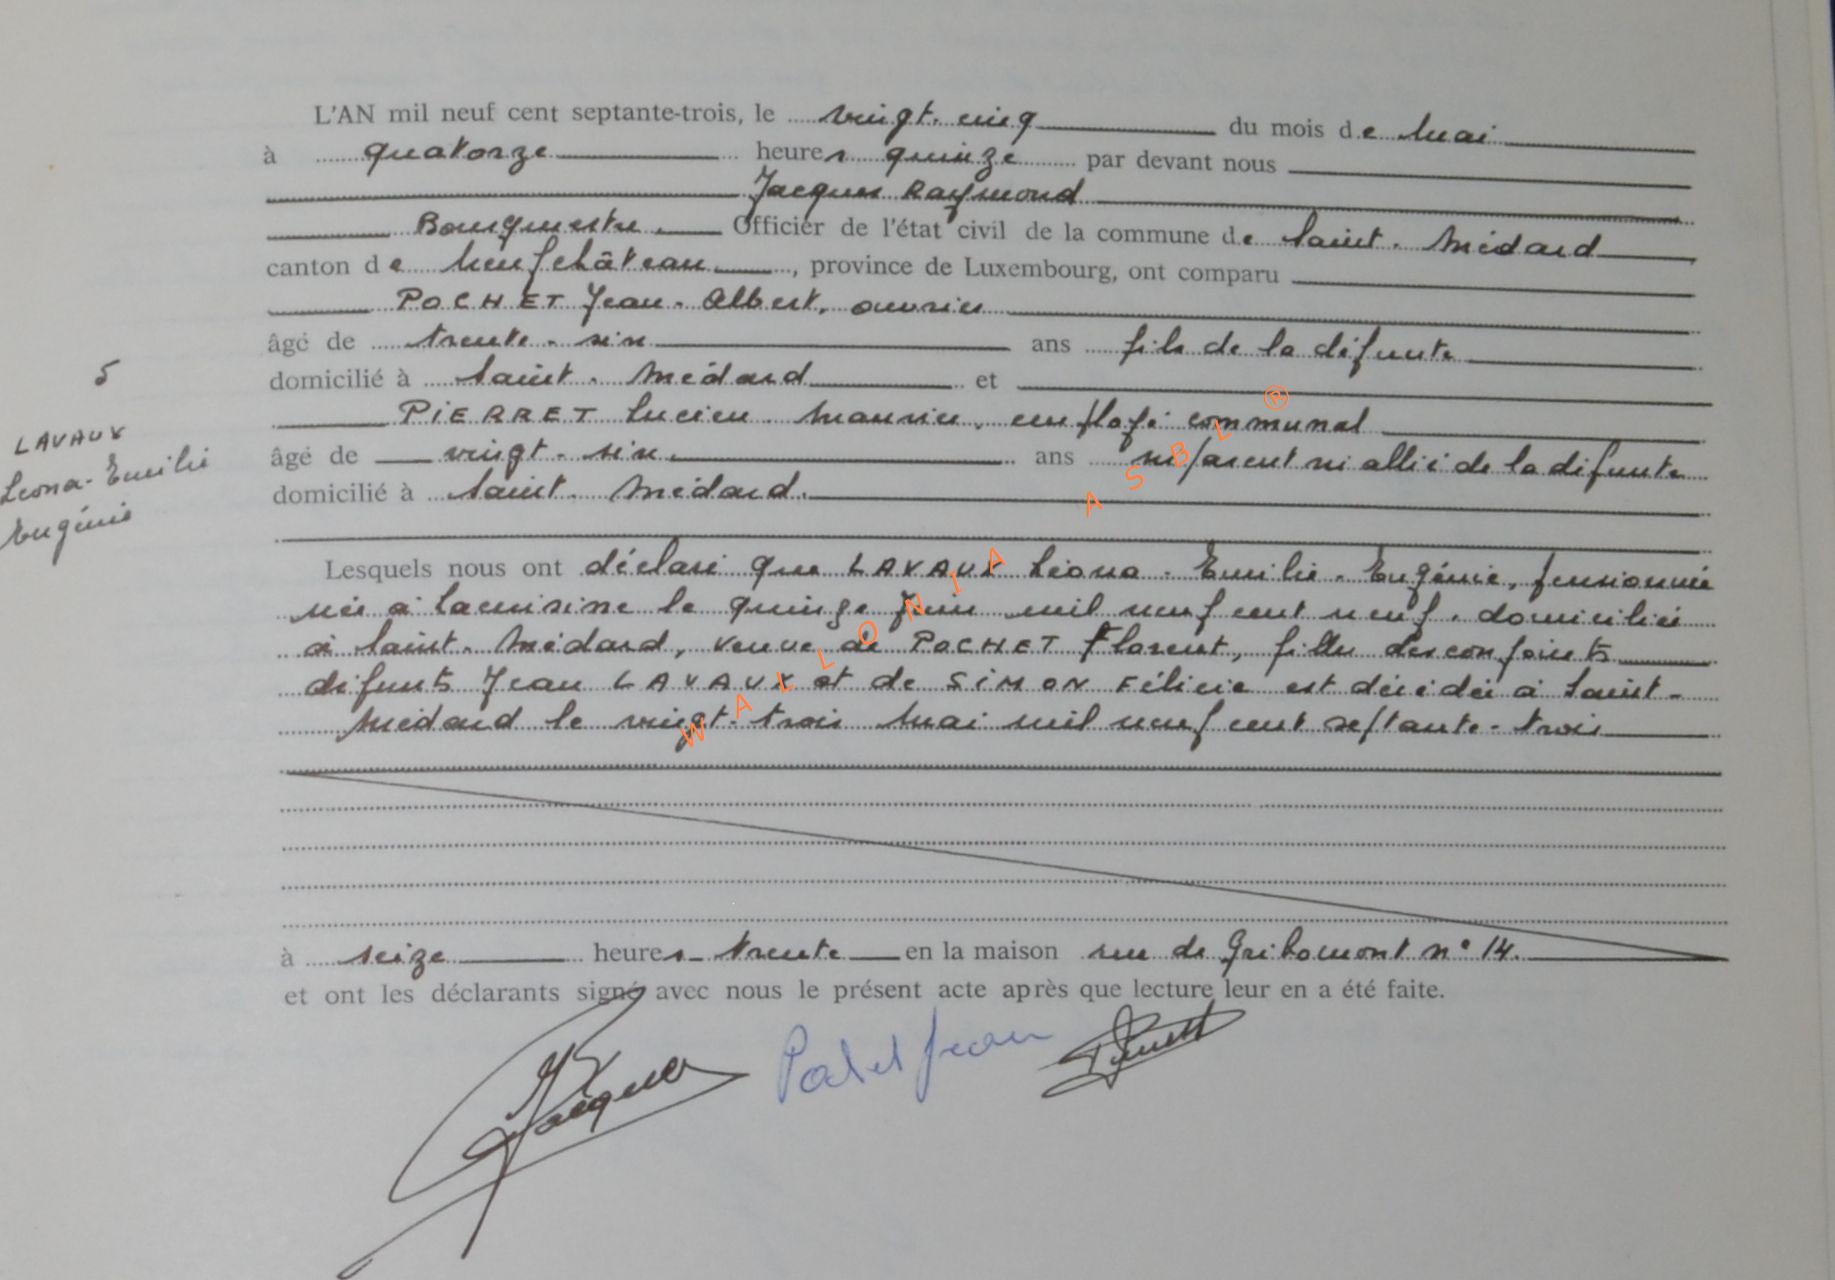 L'AN mil neuf cent septante-trois, le vingt-cinq du mois de Mai
à quatorze heures quinze par devant nous
Jacques Raymond
Bourgmestre Officier de l'état civil de la commune de Saint-Médard
canton de Neufchâteau, province de Luxembourg, ont comparu
POCHET Jean-Albert, ouvrier
âgé de trente-six ans fils de la défunte
domicilié à Saint-Médard et
PIERRET Lucien Maurice, employé communal
âgé de vingt-six ans ni parent ni allié de la défunte
domicilié à Saint-Médard.
5
LAVAUX
Léona-Emilie
Eugénie
Lesquels nous ont déclaré que LAVAUX Léona-Emilie-Eugénie, pensionnée
née à Lacuisine le quinze juin mil neuf cent neuf, domiciliée
à Saint-Médard, veuve de POCHET Florent, fille des conjoints
défunts Jean LAVAUX et de SIMON Félicie est décédée à Saint-
Médard le vingt-trois Mai mil neuf cent septante-trois
à seize heures trente en la maison rue de Gribomont n° 14.
et ont les déclarants signé avec nous le présent acte après que lecture leur en a été faite.
Jacques Pochet Jean Pierret
WALLONIA ASBL ®